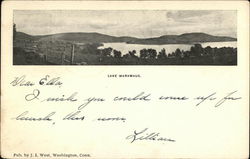 LAKE WARAMAUG.
Dear Ella,
I wish you could come up for
lunch, this noon,
Lillian
Pub. by J. I. West, Washington, Conn.